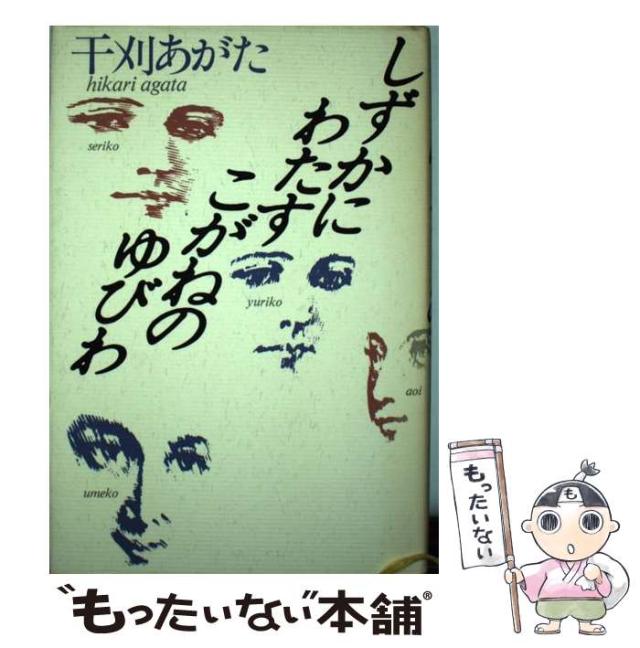 干刈あがた
hikari agata
しずかに
わたす
こがねの
ゆびわ
seriko
yuriko
aoi
umeko
もったいない
も
"もったいない"本舗®